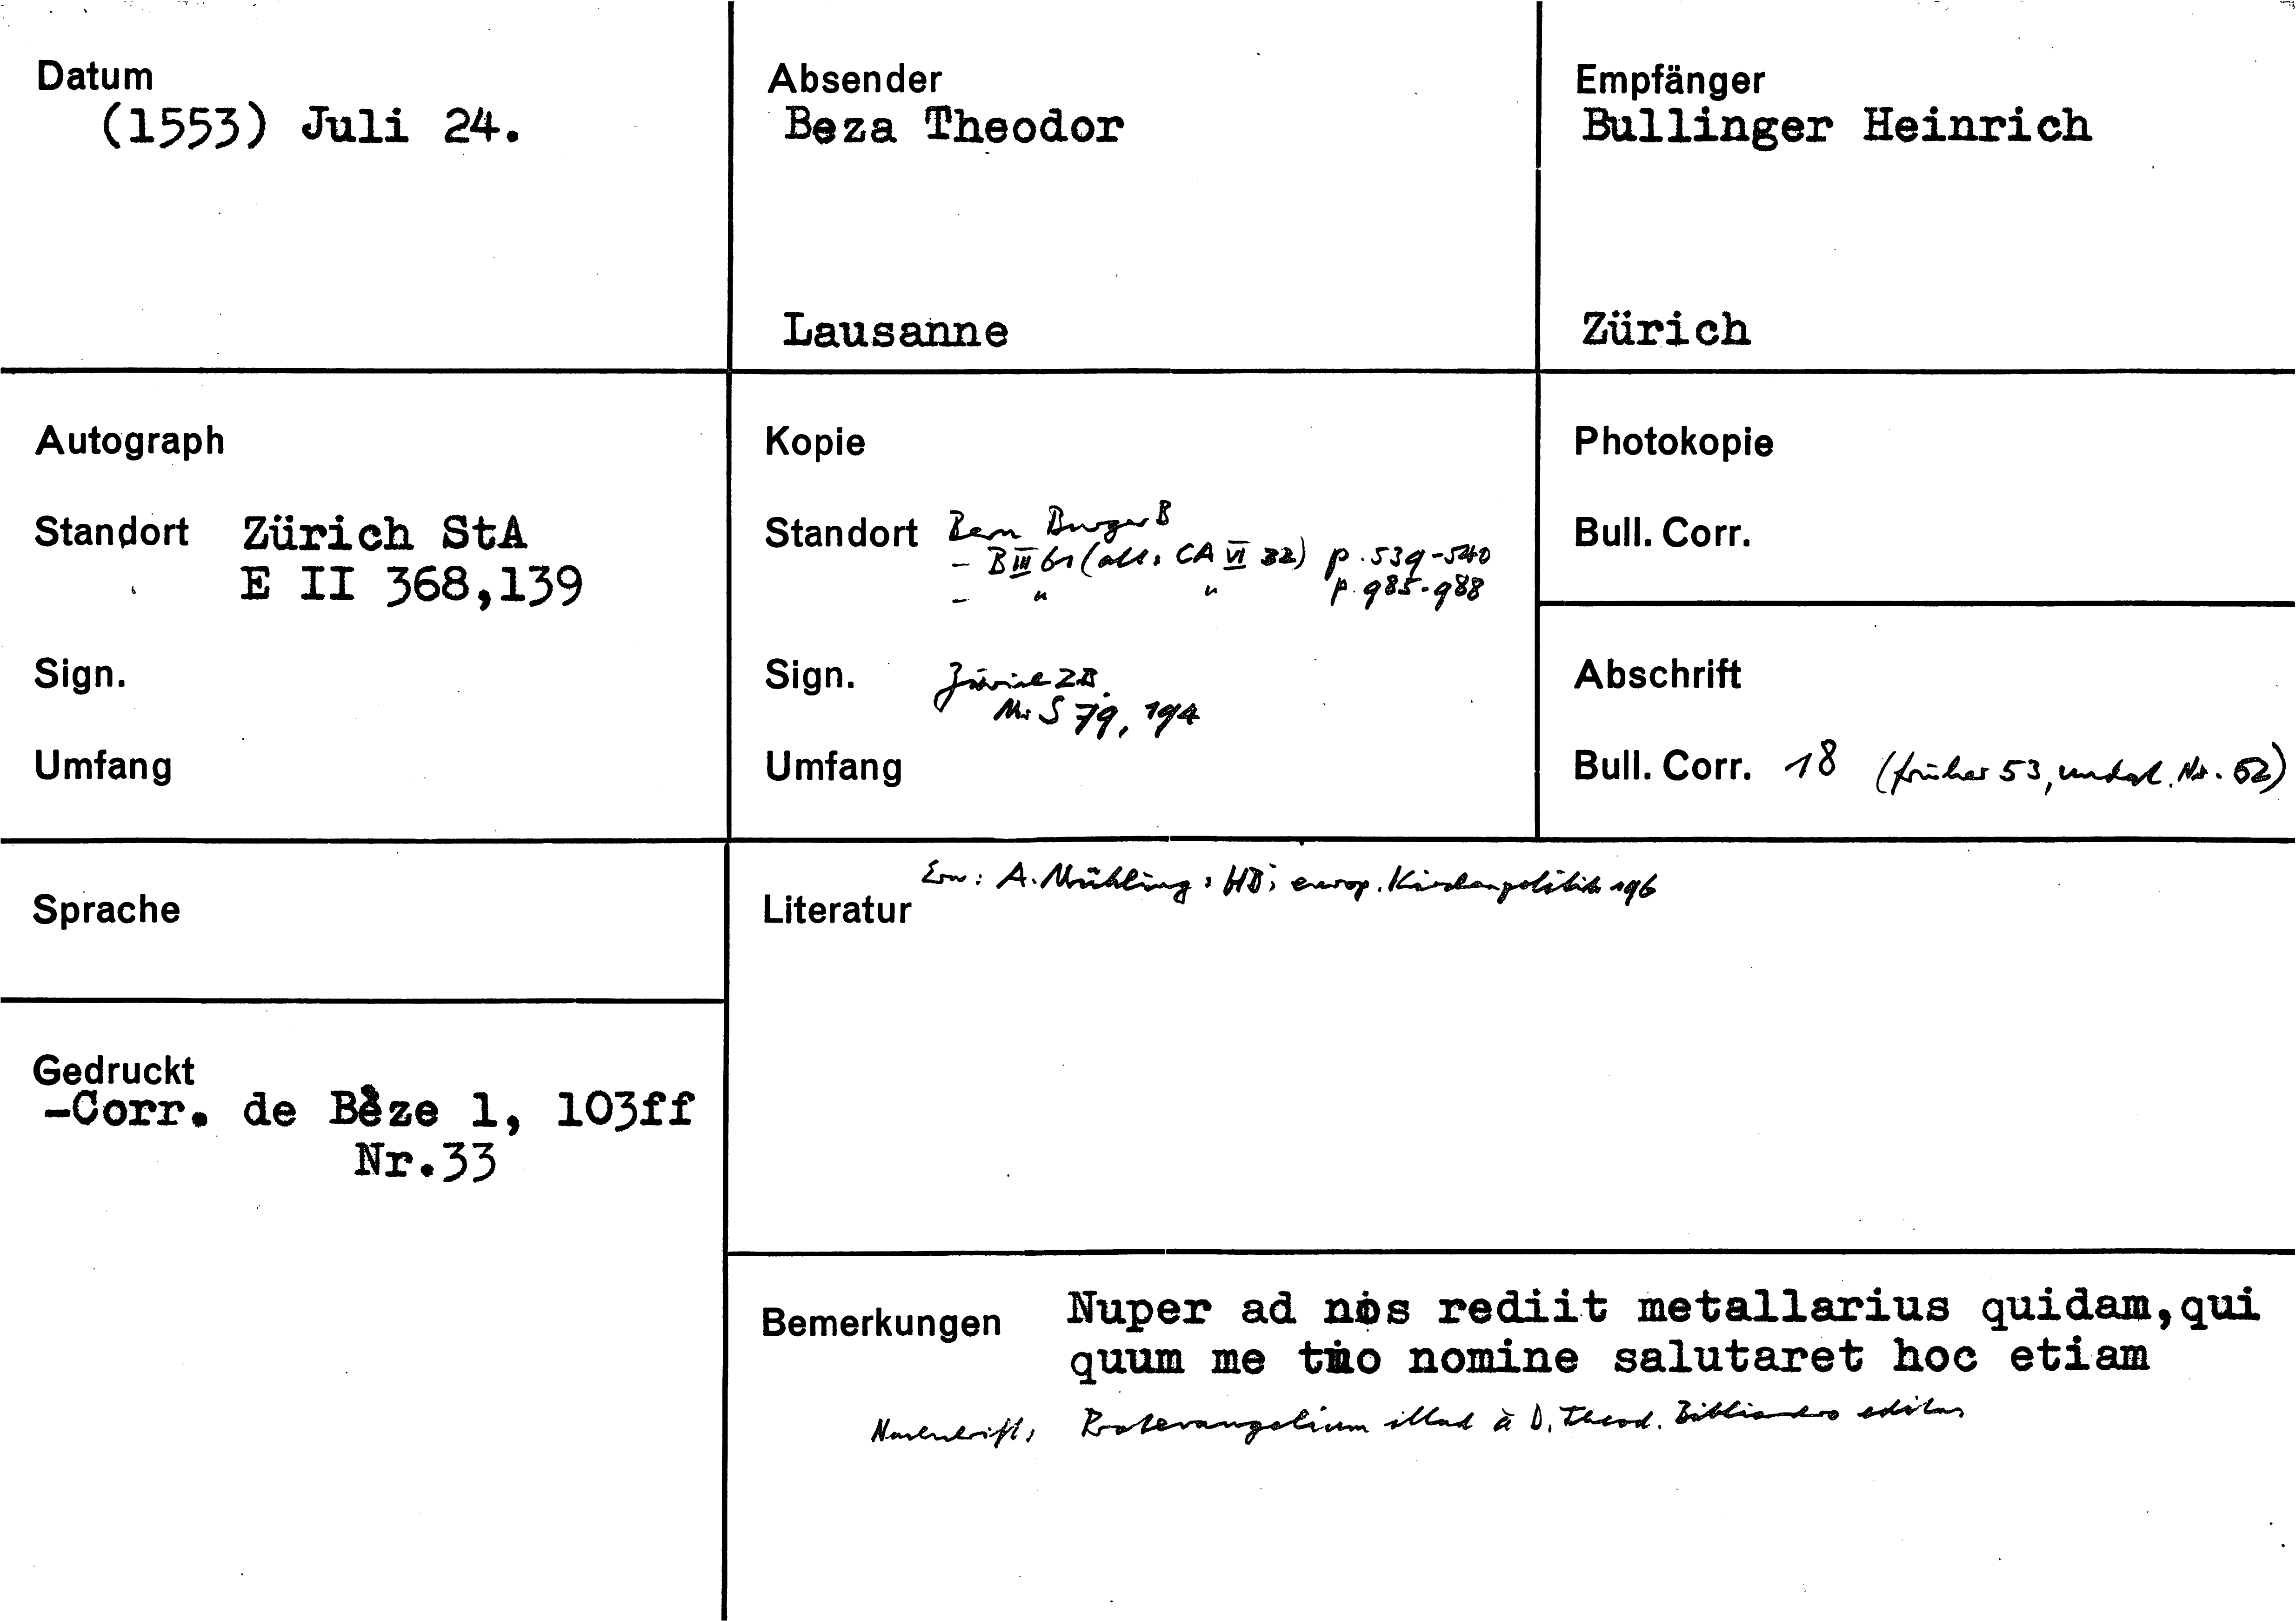 Datum
(1553) Juli 24.
Absender
Beza Theodor
Lausanne
Empfänger
Bullinger Heinrich
Zürich
Autograph
Standort Zürich StA
E II 368,139
Sign.
Umfang
Kopie
Standort Bern BurgerB
- B III 61 (alt: CA VI 32) p. 539-540
- " " p. 985-988
Sign. Zürich ZB
Ms S 79, 194
Umfang
Photokopie
Bull. Corr.
Abschrift
Bull. Corr. 18 (früher 53, undat. Nr. 52)
Sprache
Literatur Erw: A. Mühling: HBs europ. Kirchenpolitik 196
Gedruckt
-Corr. de Bèze 1, 103ff
Nr.33
Bemerkungen Nuper ad nos rediit metallarius quidam,qui
quum me tuo nomine salutaret hoc etiam
Nachschrift: Protevangelium illud à D. Theod. Bibliandro editum